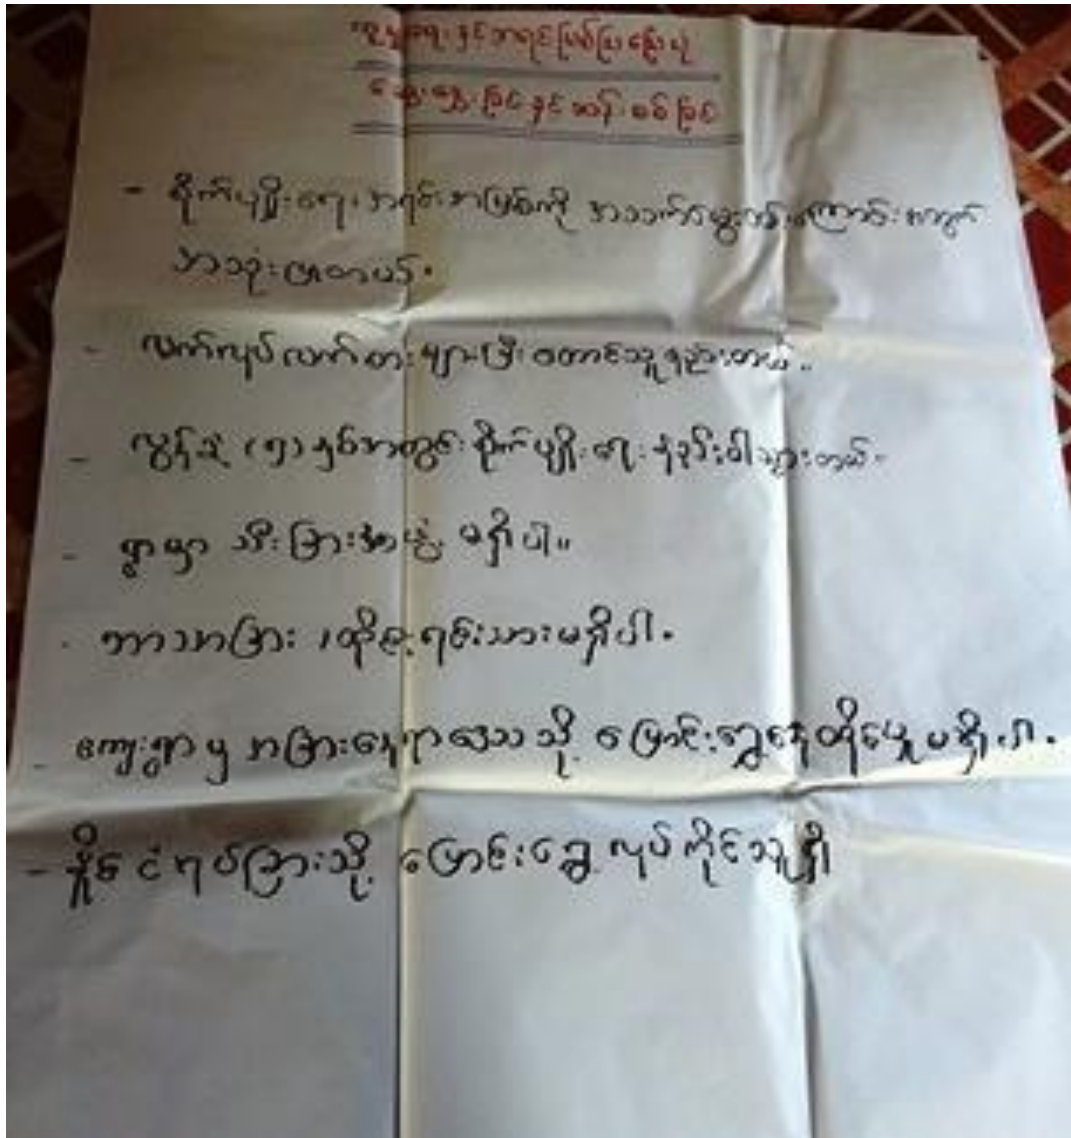 လူမှုရေးနှင့်အရင်းအမြစ်ပြ မြေပုံ
ဆွေးနွေးခြင်းနှင့်ဆန်းစစ်ခြင်း
- စိုက်ပျိုးရေးအရင်းအမြစ်ကို အသက်မွေးဝမ်းကြောင်းအတွက်
အသုံးပြုတယ်။
- လက်လုပ်လက်စားများပြီး တောင်သူနည်းတယ်။
- လွန်ခဲ့ (၅) နှစ်အတွင်း စိုက်ပျိုးရေးနည်းပါးသွားတယ်။
- ရွာမှာ သီးခြားအဖွဲ့ မရှိပါ။
- ဘာသာခြား၊ တိုင်းရင်းသားမရှိပါ။
- ကျေးရွာမှ အခြားနေရာဒေသသို့ ပြောင်းရွှေ့နေထိုင်မှု မရှိပါ။
- နိုင်ငံရပ်ခြားသို့ ပြောင်းရွှေ့လုပ်ကိုင်သူရှိ